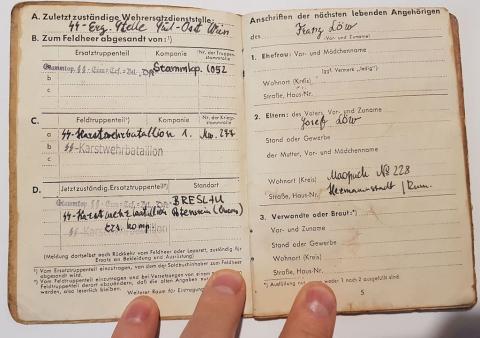 A. Zuletzt zuständige Wehrersatzdienststelle:
SS-Erg. Stelle Süd-Ost Wien
B. Zum Feldheer abgesandt von:¹)
Ersatztruppenteil
Kompanie
Nr. der Truppenstammrolle
a
Stammkp.
1052
b
c
C.
Feldtruppenteil²)
Kompanie
Nr. der Kriegsstammrolle
a
SS-Karstwehrbataillon
1.
277
b
SS-Karstwehrbataillon
c
D.
Jetzt zuständig. Ersatztruppenteil²)
Standort
BRESLAU
SS-Karstwehrbataillon
ers. komp.
(Meldung dortselbst nach Rückkehr vom Feldheer oder Lazarett, zuständig für Ersatz an Bekleidung und Ausrüstung)
¹) Vom Ersatztruppenteil einzutragen, von dem der Soldbuchinhaber zum Feldheer abgesandt wird.
Weiterer Raum für Eintragungen
Anschriften der nächsten lebenden Angehörigen
des Franz Löw
(Vor- und Zuname)
1. Ehefrau: Vor- und Mädchenname
(ggf. Vermerk „ledig")
Wohnort (Kreis)
Straße, Haus-Nr.
2. Eltern: des Vaters, Vor- und Zuname
Josef Löw
Stand oder Gewerbe
der Mutter, Vor- und Mädchenname
Wohnort (Kreis)
No 228
Straße, Haus-Nr.
Hermannstadt / Rum.
3. Verwandte oder Braut:*)
Vor- und Zuname
Stand oder Gewerbe
Wohnort (Kreis)
Straße, Haus-Nr.
*) Ausfüllung nur, wenn weder 1 noch 2 ausgefüllt sind.
5